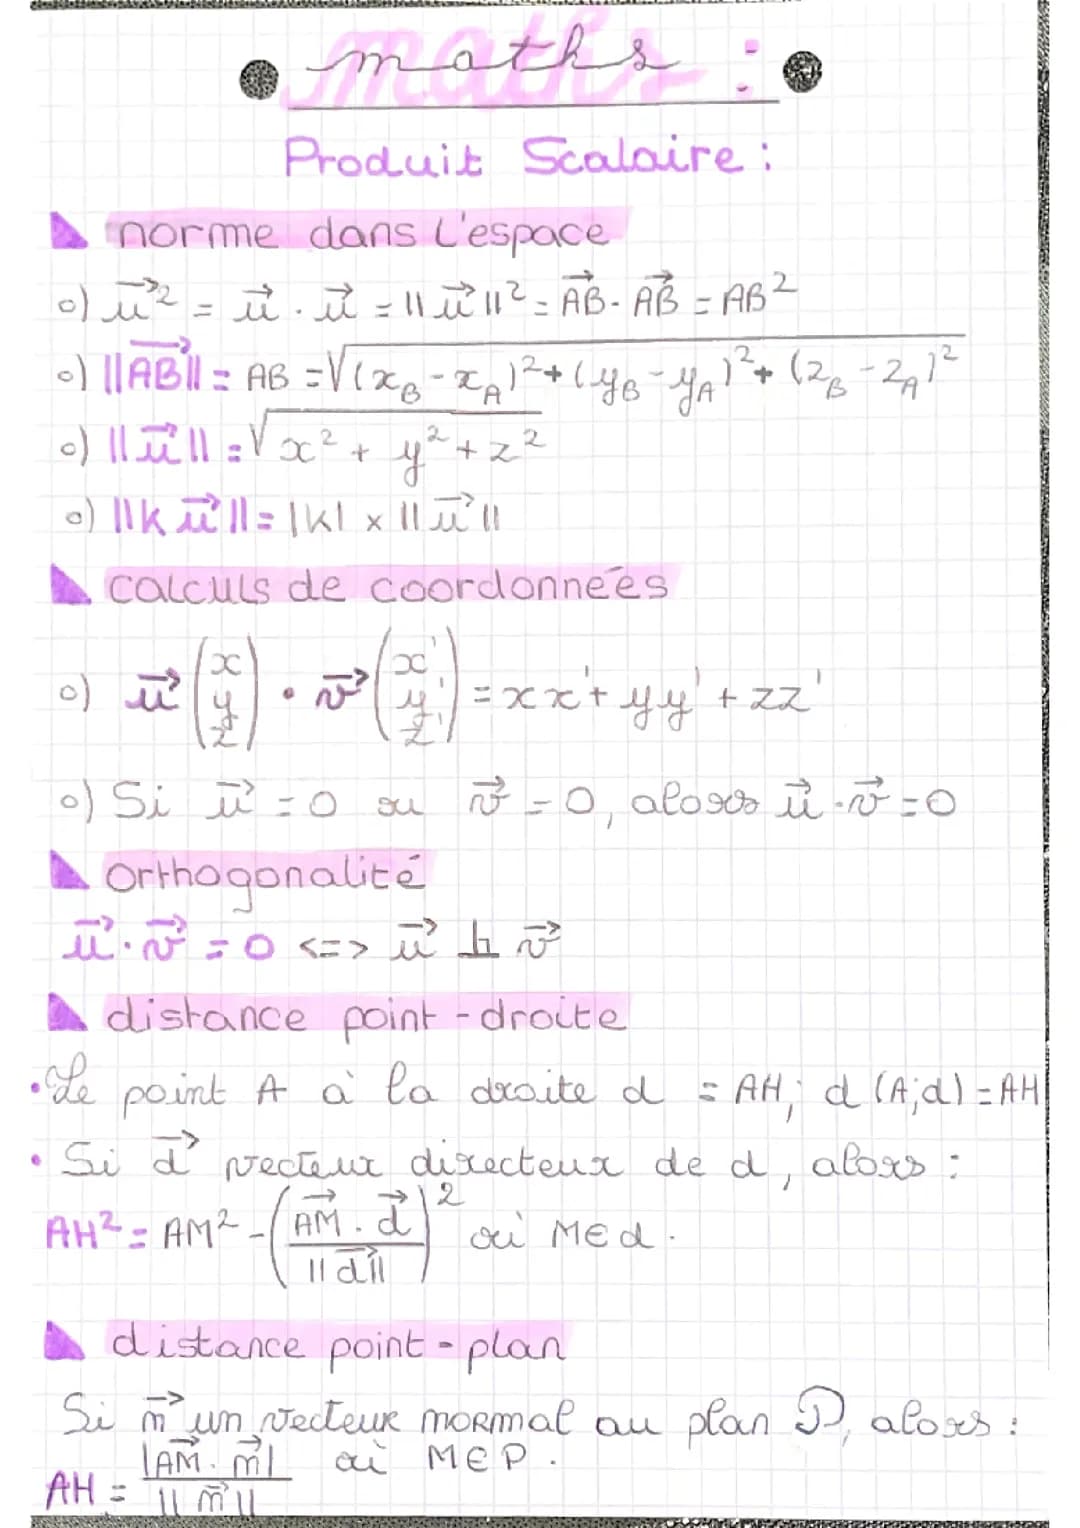 maths :
Produit Scalaire :
norme dans l'espace
o) u⃗² = u⃗ . u⃗ = ||u⃗||² = AB⃗ . AB⃗ = AB²
o) ||AB⃗|| = AB = √((x_B - x_A)² + (y_B - y_A)² + (z_B - z_A)²)
o) ||u⃗|| = √(x² + y² + z²)
o) ||k u⃗|| = |k| x ||u⃗||
calculs de coordonnées
o) u⃗ (x y z) . v⃗ (x' y' z') = xx' + yy' + zz'
o) Si u⃗ = 0 ou v⃗ = 0, alors u⃗ . v⃗ = 0
Orthogonalité
u⃗ . v⃗ = 0 <=> u⃗ ⊥ v⃗
distance point - droite
• Le point A à la droite d = AH ; d (A;d) = AH
• Si d⃗ vecteur directeur de d, alors :
AH² = AM² - (AM⃗ . d⃗ / ||d⃗||)² où M ∈ d .
distance point - plan
Si n⃗ un vecteur normal au plan P, alors :
AH = |AM⃗ . n⃗| / ||n⃗|| où M ∈ P .